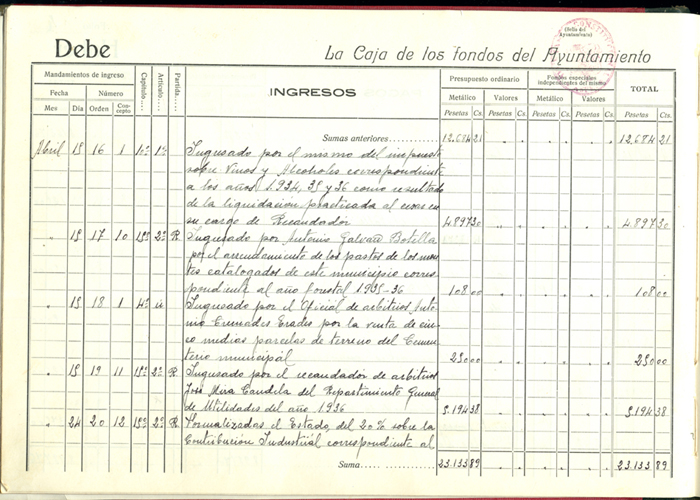 (Sello del Ayuntamiento)
Debe
La Caja de los fondos del Ayuntamiento
Mandamientos de ingreso
Capítulo....
Artículo....
Partida....
INGRESOS
Presupuesto ordinario
Fondos especiales independientes del mismo
TOTAL
Fecha Número
Metálico Valores Metálico Valores
Mes Día Orden Concepto
Pesetas Cs. Pesetas Cs. Pesetas Cs. Pesetas Cs. Pesetas Cts.
Sumas anteriores 12.684 21 12.684 21
Abril 15 16 1 10º 1º Ingresado por el mismo del impuesto
sobre Vinos y Alcoholes correspondiente
a los años 1.934, 35 y 36 como resultado
de la liquidación practicada al cesar en
su cargo de Recaudador 4.897 30 4.897 30
" 15 17 10 15º 2º R. Ingresado por Antonio Galvañ Botella
por el arrendamiento de los pastos de los mon-
tes catalogados de este municipio corres-
pondiente al año forestal 1.935-36 108 00 108 00
" 15 18 1 4º Ingresado por el Oficial de arbitrios Anto-
nio por la venta de cin-
co medias parcelas de terreno del Cemen-
terio municipal 250 00 250 00
" 15 19 11 15º 2º R. Ingresado por el recaudador de arbitrios
José Mira Candela del Repartimiento General
de Utilidades del año 1.936 5.194 38 5.194 38
" 24 20 12 15º 2º R. Formalizadas el Estado, del 20% sobre la
Contribución Industrial correspondiente al
Suma 23.133 89 23.133 89